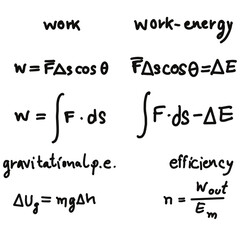 work work-energy
W = F̅Δs cos θ F̅Δs cos θ = ΔE
W = ∫F · ds ∫F · ds - ΔE
gravitational p.e. efficiency
ΔUg = mgΔh n = Wout / Em